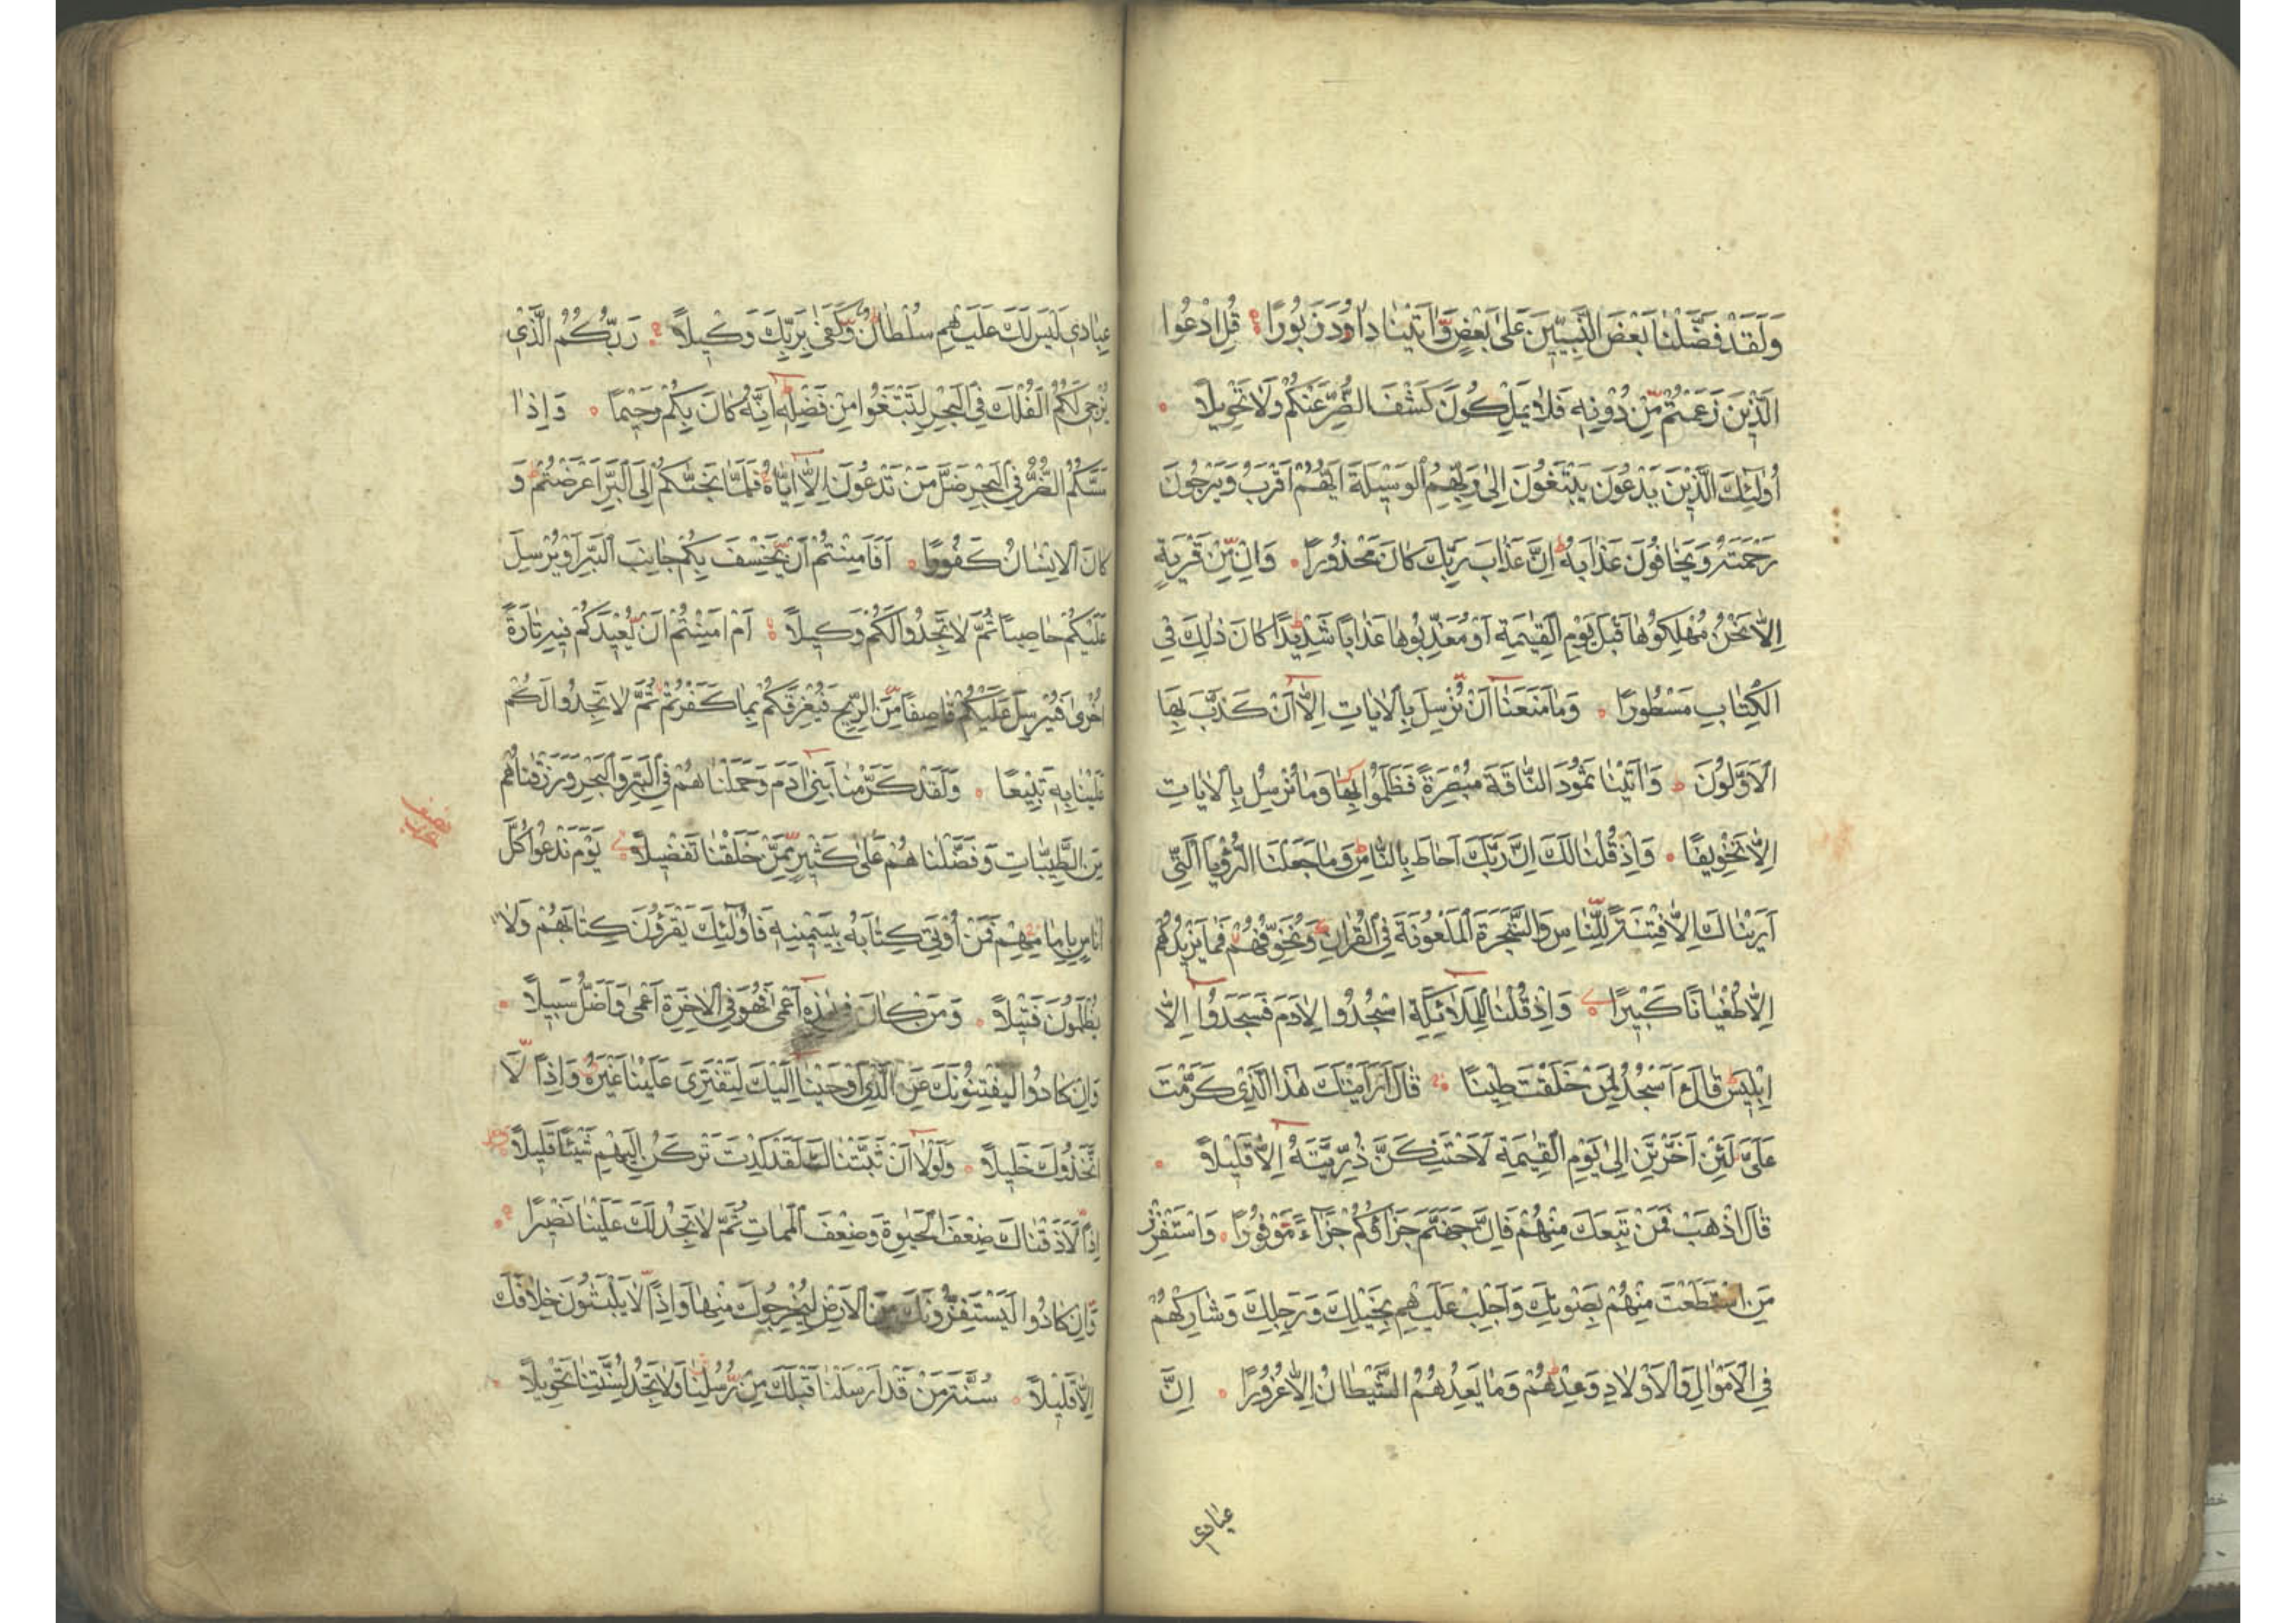 وَلَقَدْ فَضَّلْنَا بَعْضَ النَّبِيّٖنَ عَلٰى بَعْضٍ وَّاٰتَيْنَا دَاوُدَ زَبُورًا قُلِ ادْعُوا
الَّذِيْنَ زَعَمْتُمْ مِّنْ دُوْنِهٖ فَلَا يَمْلِكُوْنَ كَشْفَ الضُّرِّ عَنْكُمْ وَلَا تَحْوِيْلًا
اُولٰئِكَ الَّذِيْنَ يَدْعُوْنَ يَبْتَغُوْنَ اِلٰى رَبِّهِمُ الْوَسِيْلَةَ اَيُّهُمْ اَقْرَبُ وَيَرْجُوْنَ
رَحْمَتَهُ وَيَخَافُوْنَ عَذَابَهُ اِنَّ عَذَابَ رَبِّكَ كَانَ مَحْذُوْرًا وَاِنْ مِّنْ قَرْيَةٍ
اِلَّا نَحْنُ مُهْلِكُوْهَا قَبْلَ يَوْمِ الْقِيٰمَةِ اَوْ مُعَذِّبُوْهَا عَذَابًا شَدِيْدًا كَانَ ذٰلِكَ فِي
الْكِتَابِ مَسْطُوْرًا وَمَا مَنَعَنَا اَنْ نُّرْسِلَ بِالْاٰيَاتِ اِلَّا اَنْ كَذَّبَ بِهَا
الْاَوَّلُوْنَ وَاٰتَيْنَا ثَمُوْدَ النَّاقَةَ مُبْصِرَةً فَظَلَمُوْا بِهَا وَمَا نُرْسِلُ بِالْاٰيَاتِ
اِلَّا تَخْوِيْفًا وَاِذْ قُلْنَا لَكَ اِنَّ رَبَّكَ اَحَاطَ بِالنَّاسِ وَمَا جَعَلْنَا الرُّؤْيَا الَّتِيْ
اَرَيْنَاكَ اِلَّا فِتْنَةً لِّلنَّاسِ وَالشَّجَرَةَ الْمَلْعُوْنَةَ فِي الْقُرْاٰنِ وَنُخَوِّفُهُمْ فَمَا يَزِيْدُهُمْ
اِلَّا طُغْيَانًا كَبِيْرًا وَاِذْ قُلْنَا لِلْمَلَائِكَةِ اسْجُدُوا لِاٰدَمَ فَسَجَدُوْا اِلَّا
اِبْلِيْسَ قَالَ ءَاَسْجُدُ لِمَنْ خَلَقْتَ طِيْنًا قَالَ اَرَاَيْتَكَ هٰذَا الَّذِيْ كَرَّمْتَ
عَلَيَّ لَئِنْ اَخَّرْتَنِ اِلٰى يَوْمِ الْقِيٰمَةِ لَاَحْتَنِكَنَّ ذُرِّيَّتَهُ اِلَّا قَلِيْلًا
قَالَ اذْهَبْ فَمَنْ تَبِعَكَ مِنْهُمْ فَاِنَّ جَهَنَّمَ جَزَاؤُكُمْ جَزَاءً مَّوْفُوْرًا وَاسْتَفْزِزْ
مَنِ اسْتَطَعْتَ مِنْهُمْ بِصَوْتِكَ وَاَجْلِبْ عَلَيْهِمْ بِخَيْلِكَ وَرَجِلِكَ وَشَارِكْهُمْ
فِي الْاَمْوَالِ وَالْاَوْلَادِ وَعِدْهُمْ وَمَا يَعِدُهُمُ الشَّيْطَانُ اِلَّا غُرُوْرًا اِنَّ
عبادي
عِبَادِي لَيْسَ لَكَ عَلَيْهِمْ سُلْطَانٌ وَّكَفٰى بِرَبِّكَ وَكِيْلًا رَبُّكُمُ الَّذِيْ
يُزْجِي لَكُمُ الْفُلْكَ فِي الْبَحْرِ لِتَبْتَغُوا مِنْ فَضْلِهٖ اِنَّهُ كَانَ بِكُمْ رَحِيْمًا وَاِذَا
مَسَّكُمُ الضُّرُّ فِي الْبَحْرِ ضَلَّ مَنْ تَدْعُوْنَ اِلَّا اِيَّاهُ فَلَمَّا نَجّٰىكُمْ اِلَى الْبَرِّ اَعْرَضْتُمْ وَ
كَانَ الْاِنْسَانُ كَفُوْرًا اَفَاَمِنْتُمْ اَنْ يَّخْسِفَ بِكُمْ جَانِبَ الْبَرِّ اَوْ يُرْسِلَ
عَلَيْكُمْ حَاصِبًا ثُمَّ لَا تَجِدُوا لَكُمْ وَكِيْلًا اَمْ اَمِنْتُمْ اَنْ يُّعِيْدَكُمْ فِيْهِ تَارَةً
اُخْرٰى فَيُرْسِلَ عَلَيْكُمْ قَاصِفًا مِّنَ الرِّيْحِ فَيُغْرِقَكُمْ بِمَا كَفَرْتُمْ ثُمَّ لَا تَجِدُوا لَكُمْ
عَلَيْنَا بِهٖ تَبِيْعًا وَلَقَدْ كَرَّمْنَا بَنِيْ اٰدَمَ وَحَمَلْنَاهُمْ فِي الْبَرِّ وَالْبَحْرِ وَرَزَقْنَاهُمْ
مِنَ الطَّيِّبَاتِ وَفَضَّلْنَاهُمْ عَلٰى كَثِيْرٍ مِّمَّنْ خَلَقْنَا تَفْضِيْلًا يَوْمَ نَدْعُوْا كُلَّ
اُنَاسٍ بِاِمَامِهِمْ فَمَنْ اُوْتِيَ كِتَابَهُ بِيَمِيْنِهٖ فَاُولٰئِكَ يَقْرَؤُنَ كِتَابَهُمْ وَلَا
يُظْلَمُوْنَ فَتِيْلًا وَمَنْ كَانَ فِي هٰذِهٖ اَعْمٰى فَهُوَ فِي الْاٰخِرَةِ اَعْمٰى وَاَضَلُّ سَبِيْلًا
وَاِنْ كَادُوْا لَيَفْتِنُوْنَكَ عَنِ الَّذِيْ اَوْحَيْنَا اِلَيْكَ لِتَفْتَرِيَ عَلَيْنَا غَيْرَهُ وَاِذًا لَّا
تَّخَذُوْكَ خَلِيْلًا وَلَوْلَا اَنْ ثَبَّتْنَاكَ لَقَدْ كِدْتَ تَرْكَنُ اِلَيْهِمْ شَيْئًا قَلِيْلًا
اِذًا لَّاَذَقْنَاكَ ضِعْفَ الْحَيٰوةِ وَضِعْفَ الْمَمَاتِ ثُمَّ لَا تَجِدُ لَكَ عَلَيْنَا نَصِيْرًا
وَّاِنْ كَادُوْا لَيَسْتَفِزُّوْنَكَ مِنَ الْاَرْضِ لِيُخْرِجُوْكَ مِنْهَا وَاِذًا لَّا يَلْبَثُوْنَ خِلَافَكَ
اِلَّا قَلِيْلًا سُنَّةَ مَنْ قَدْ اَرْسَلْنَا قَبْلَكَ مِنْ رُّسُلِنَا وَلَا تَجِدُ لِسُنَّتِنَا تَحْوِيْلًا